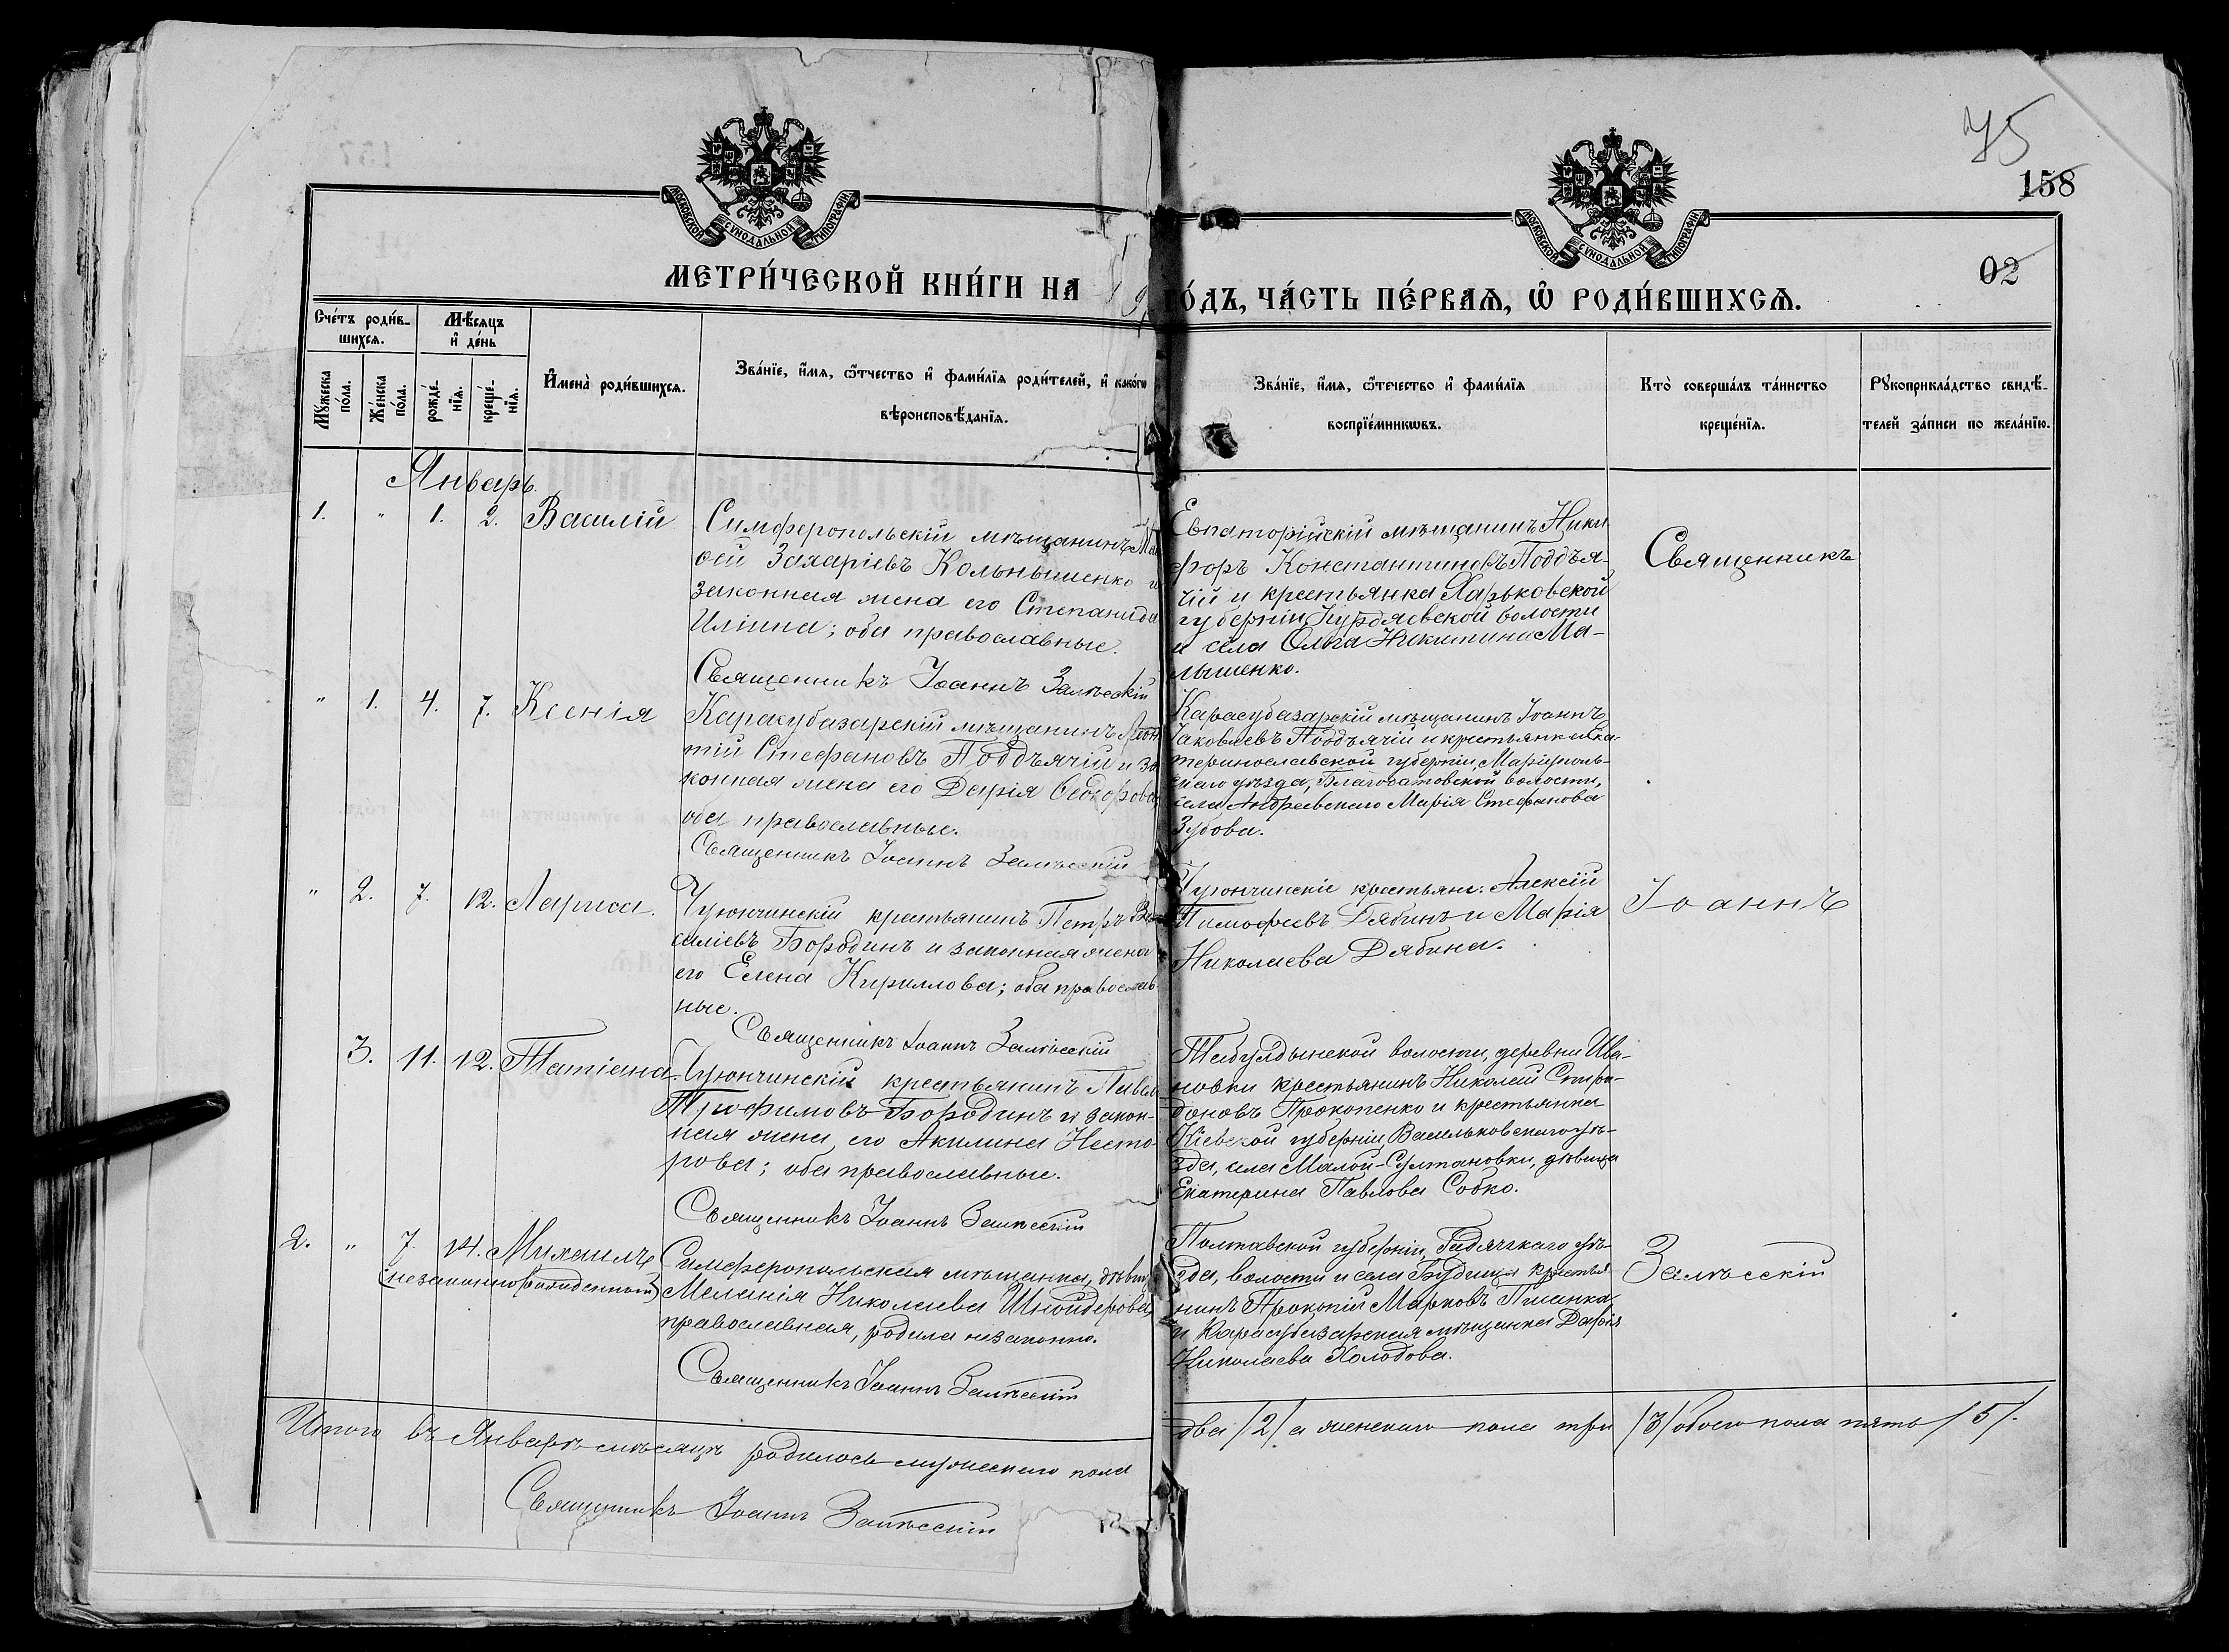 75
158
МОСКОВСКОЙ СѴНОДАЛЬНОЙ ТИПОГРАФІИ.
МОСКОВСКОЙ СѴНОДАЛЬНОЙ ТИПОГРАФІИ.
02
МЕТРИ́ЧЕСКОЙ КНИ́ГИ НА
ГО́ДЪ, ЧА́СТЬ ПЕ́РВАЯ, Ѽ РОДИ́ВШИХСЯ.
Сче́тъ роди́в-
шихся.
Мѣ́сяцъ
и де́нь
Мꙋжеска
по́ла.
Же́нска
по́ла.
рожде́-
нїя.
креще́-
нїя.
Имена̀ роди́вшихся.
Зва́нїе, и́мя, ѻ҆́тчество и фами́лїя роди́телей, и како́гѡ
вѣроисповѣ́данїя.
Зва́нїе, и́мя, ѻ҆́течество и фами́лїя
воспрїе́мникѡвъ.
Кто̀ соверша́лъ та́инство
креще́нїя.
Рꙋкоприкла́дство свидѣ́-
телей за́писи по жела́нїю.
Январь.
1. " 1. 2. Василій
Симферопольскій мѣщанинъ
Захаріевъ Кольнышенко и
законная жена его Степанида
Иліина; оба православные.
Священникъ Іоаннъ Залѣсскій
Евпаторійскій мѣщанинъ Ники-
форъ Константиновъ Поддъя-
чій и крестьянка Харьковской
губерніи, волости
и села Ольга Никитина Ма-
лышенко.
Священникъ
" 1. 4. 7. Ксенія
Карасубазарскій мѣщанинъ Леон
тій Стефановъ Поддъячій и за
конная жена его Дарія Ѳеодорова
оба православные.
Священникъ Іоаннъ Залѣсскій
Карасубазарскій мѣщанинъ Іоаннъ
Іаковлевъ Поддъячій и крестьянка Ека-
теринославской губерніи, Маріуполь-
скаго уѣзда, Благодатовской волости,
села Андреевскаго Марія Стефанова
Зубова.
" 2. 7. 12. Лариса.
Чуюнчинскій крестьянинъ Петръ Ва
силіевъ Бородинъ и законная жена
его Елена Кириллова; оба православ-
ные.
Священникъ Іоаннъ Залѣсскій
Чуюнчинскіе крестьяне: Алексій
Тимофеевъ Дябинъ и Марія
Николаева Дябина.
Іоаннъ
3. 11. 12. Татіана.
Чуюнчинскій крестьянинъ Павелъ
Трофимовъ Бородинъ и закон-
ная жена его Акилина Несто-
рова; оба православные.
Священникъ Іоаннъ Залѣсскій
Табулдынской волости, деревни Ива-
новки крестьянинъ Николай Спири-
доновъ Прокопенко и крестьянка
Кіевской губерніи, Васильковскаго уѣ-
зда, села Малой-Султановки, дѣвица
Екатерина Павлова Собко.
2. " 7. 14. Михаилъ
(незаконнорожденный)
Симферопольская мѣщанка, дѣвица
Меланія Николаева Шнойдерова,
православная, родила незаконно.
Священникъ Іоаннъ Залѣсскій
Полтавской губерніи, Гадячскаго уѣ-
зда, волости и села Будища крестья
нинъ Прокопій Марковъ Писанка
и Карасубазарская мѣщанка Дарія
Николаева Холодова.
Залѣсскій
Итого въ Январѣ мѣсяцѣ родилось мужескаго пола
два /2/ а женскаго пола три /3/ обоего пола пять /5/.
Священникъ Іоаннъ Залѣсскій